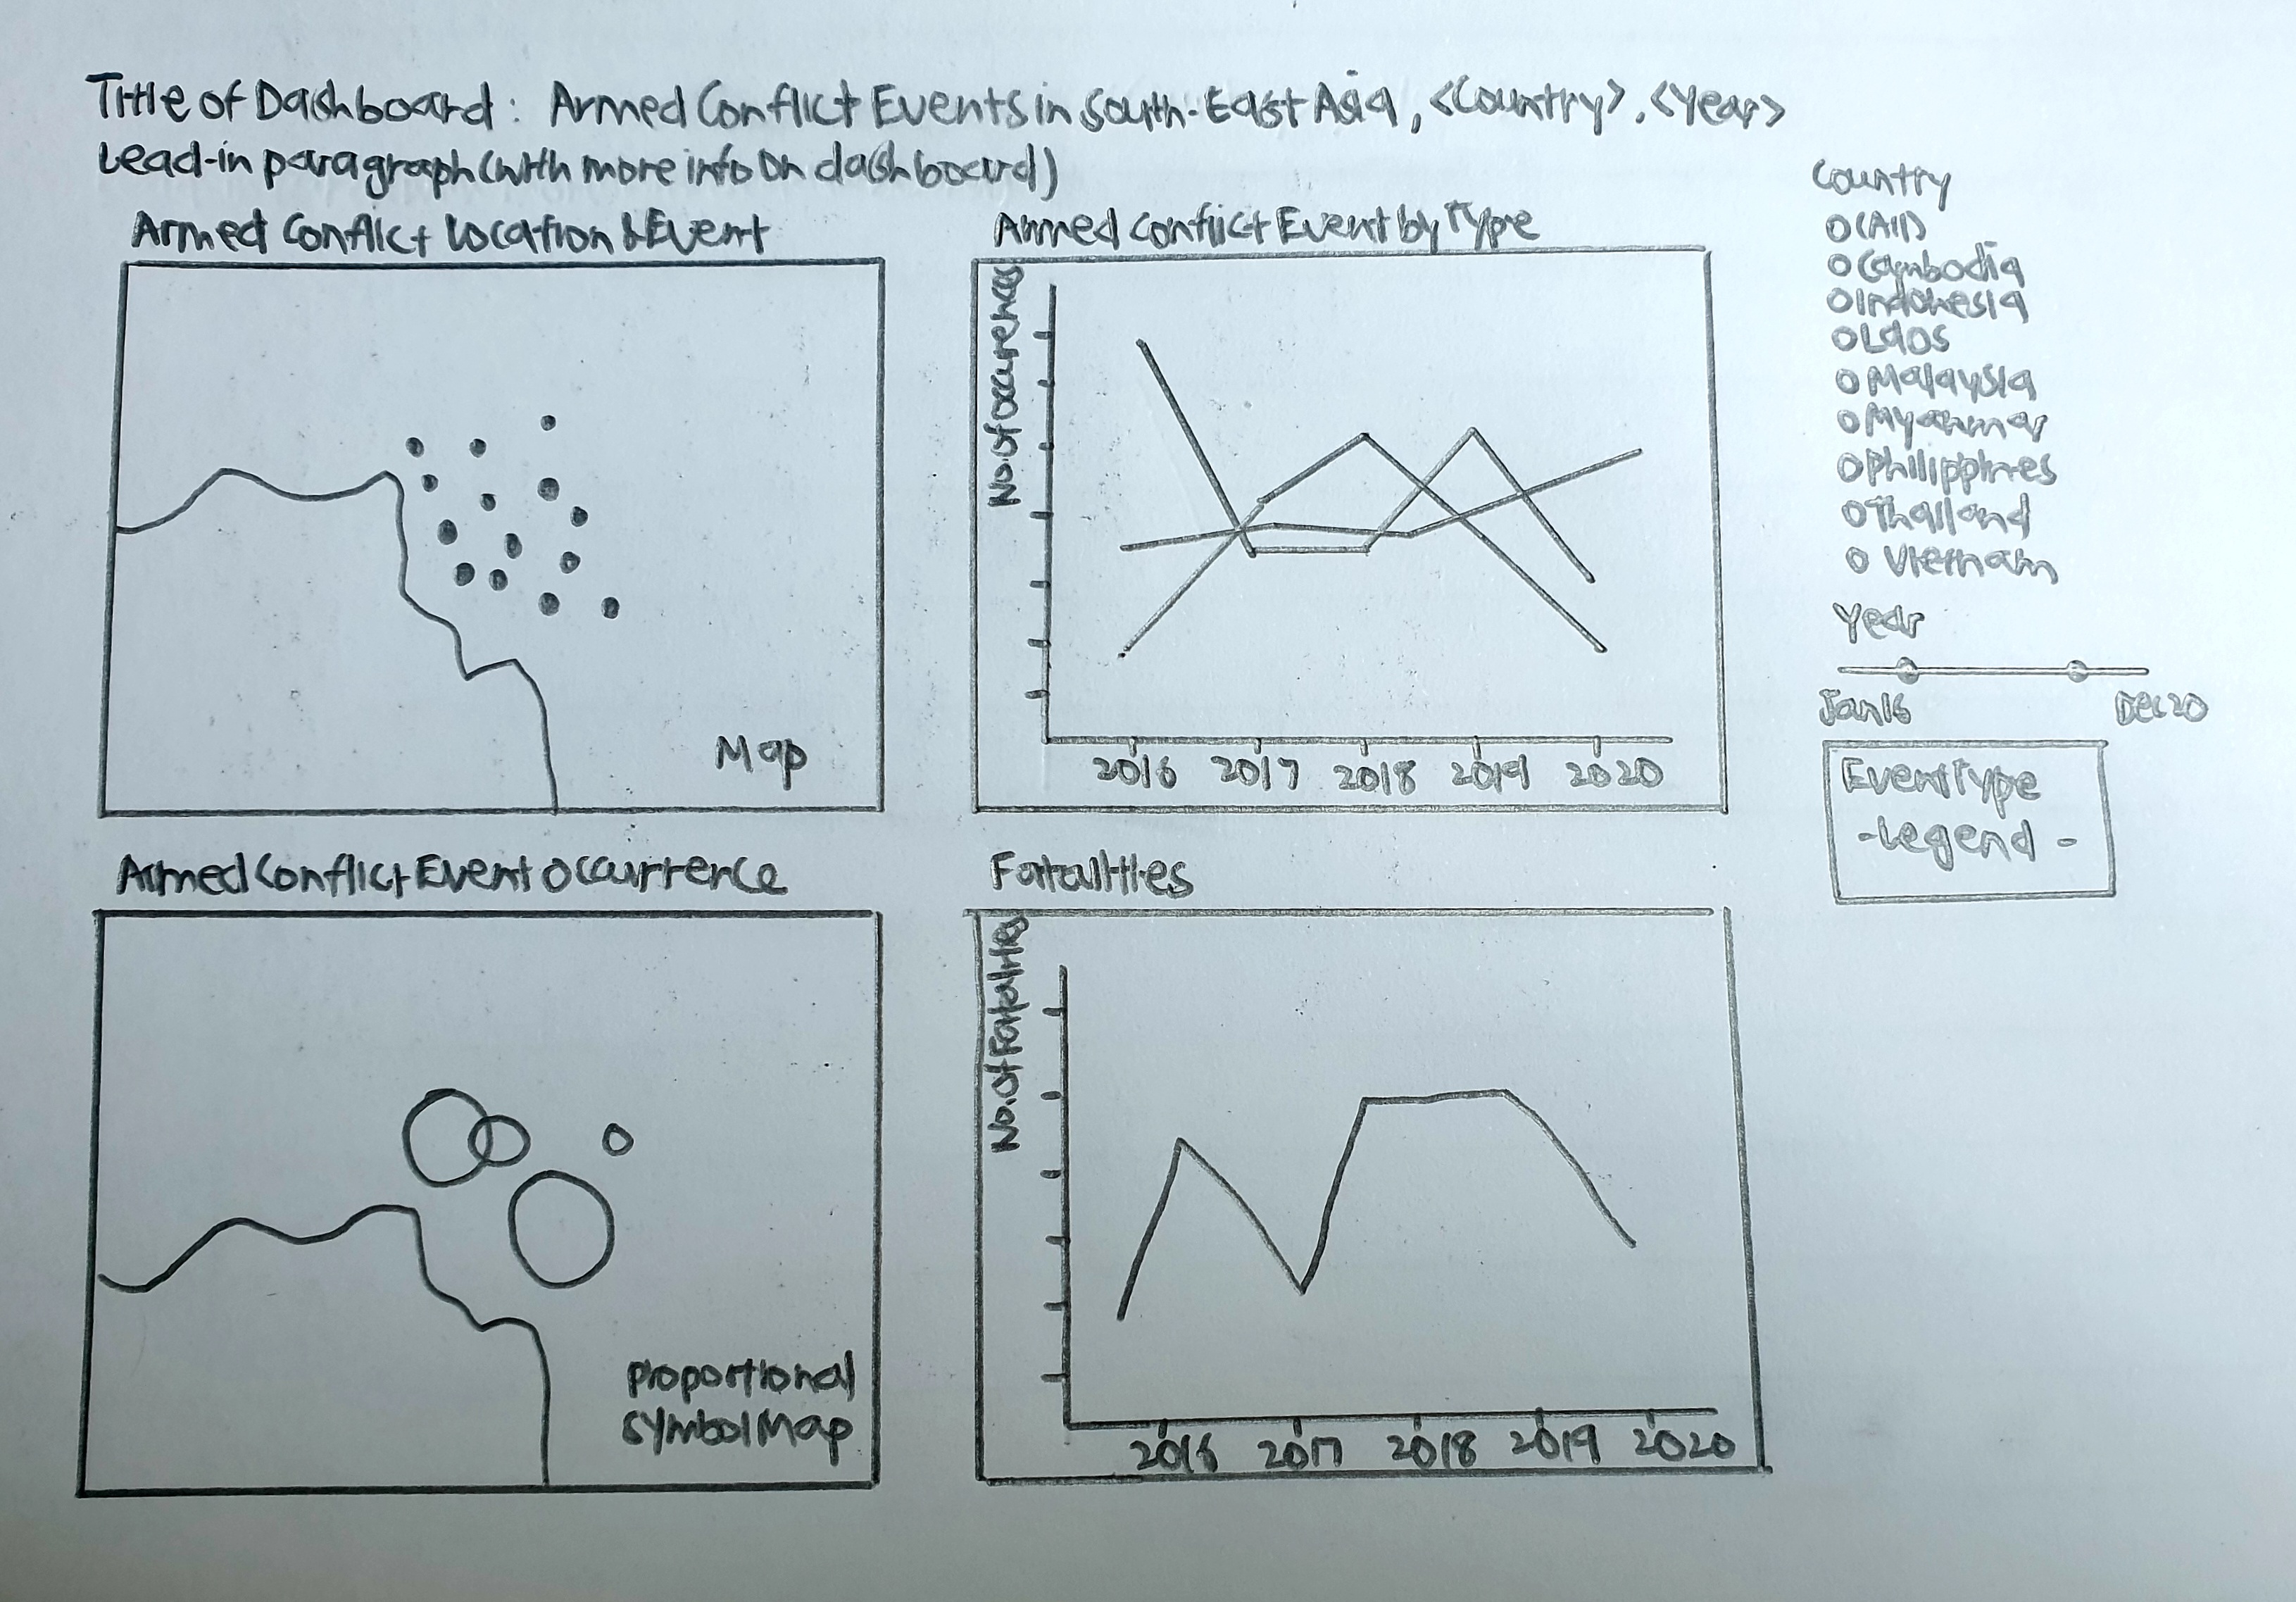 Title of Dashboard: Armed Conflict Events in South-East Asia, <Country>, <Year>
Lead-in paragraph (with more info on dashboard)
Armed Conflict Location & Event
Map
Armed Conflict Event by Type
No. of occurences
2016 2017 2018 2019 2020
Country
(All)
Cambodia
Indonesia
Laos
Malaysia
Myanmar
Philippines
Thailand
Vietnam
Year
Jan16 Dec20
Event Type
- Legend -
Armed Conflict Event Occurrence
Proportional
Symbol Map
Fatalities
No. of Fatalities
2016 2017 2018 2019 2020